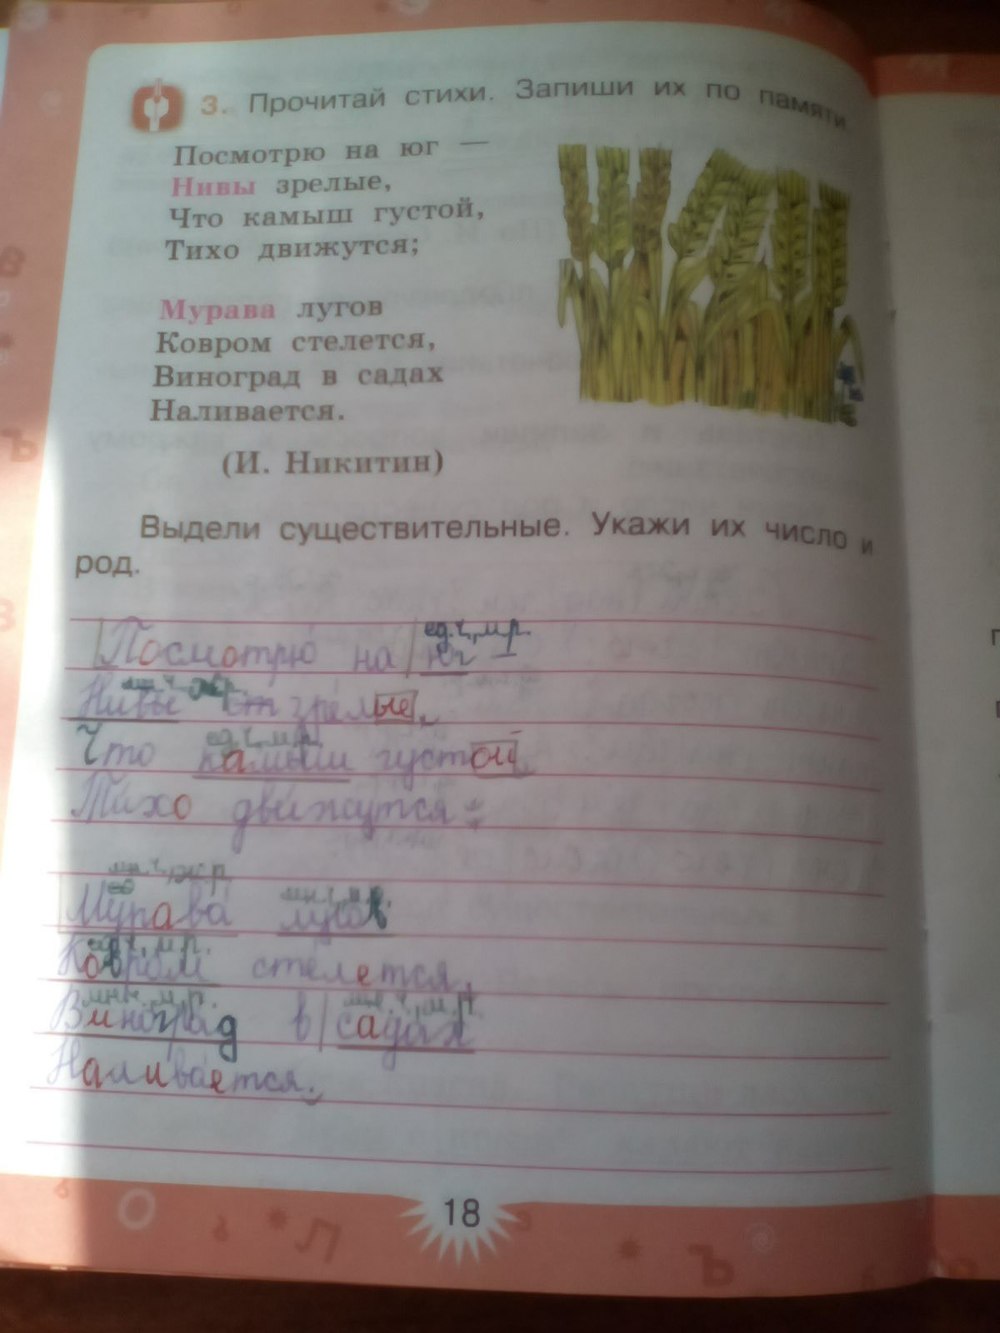 3. Прочитай стихи. Запиши их по памяти
Посмотрю на юг —
Нивы зрелые,
Что камыш густой,
Тихо движутся;
Мурава лугов
Ковром стелется,
Виноград в садах
Наливается.
(И. Никитин)
Выдели существительные. Укажи их число и
род.
ед.ч, м.р.
Посмотрю на юг —
мн.ч
Нивы зрелые,
ед.ч, м.р.
Что камыш густой,
Тихо движутся:
ж.р.
Мурава лугов
м.р.
Ковром стелется,
м.р. м.р.
Виноград в садах
Наливается.
18